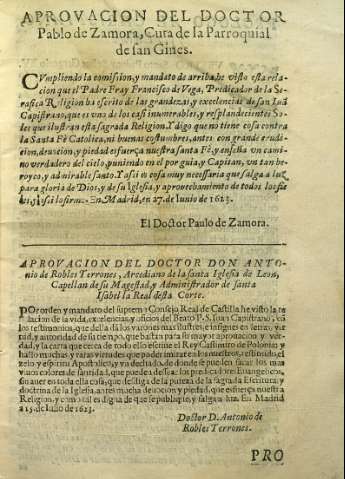 APROVACION DEL DOCTOR
Pablo de Zamora, Cura de la Parroquial
de san Gines.
CVmpliendo la comision, y mandato de arriba, he visto esta rela-
cion que el Padre Fray Francisco de Vega, Predicador de la Se-
rafica Religion ha escrito de las grandezas, y excelencias de san Iuã
Capistrano, que es vno de los casi inumerables, y resplandecientes So-
les que ilustran esta sagrada Religion. Y digo que no tiene cosa contra
la Santa Fè Catolica, ni buenas costumbres, antes con grande erudi-
cion, deuocion, y piedad esfuerça nuestra santa Fè, y enseña vn cami-
no verdadero del cielo, puniendo en el por guia, y Capitan, vn tan he-
royco, y admirable santo. Y assi es cosa muy necessaria que salga a luz
para gloria de Dios, y de su Iglesia, y aprouechamiento de todos los fie
les, y assi lo firmo. En Madrid, en 27. de Iunio de 1623.
El Doctor Paulo de Zamora.
APROVACION DEL DOCTOR DON ANTO-
nio de Robles Terrones, Arcediano de la santa Iglesia de Leon,
Capellan de su Magestad, y Administrador de santa
Isabel la Real desta Corte.
POr orden y mandato del supremo Consejo Real de Castilla he visto la re
lacion de la vida, excelencias, y oficios del Beato P. S. Iuan Capistrano, cõ
los testimonios, que della dã los varones mas ilustres, e insignes en letras, vir
tud, y autoridad de su tiempo, que bastan para su mayor aprouacion y ver-
dad, y la carta que cerca de todo ello escriue el Rey Casimiro de Polonia: y
hallo muchas, y raras virtudes que poder imitar en los nuestros, resistiendo el
zelo y espiritu Apostolico, y vn dechado, de donde se pueden sacar los mas
viuos colores de santidad, que puedan dessear los predicadores Euangelicos,
sin auer en toda ella cosa, que desdiga de la pureza de la sagrada Escritura, y
doctrina de la Iglesia, antes mucha de docion y piedad, que esfuerça nuestra
Religion, y como tal es digna de que se publique, y salga a luz. En Madrid
a 15. de Iulio de 1623.
Doctor D. Antonio de
Robles Terrones.
PRO